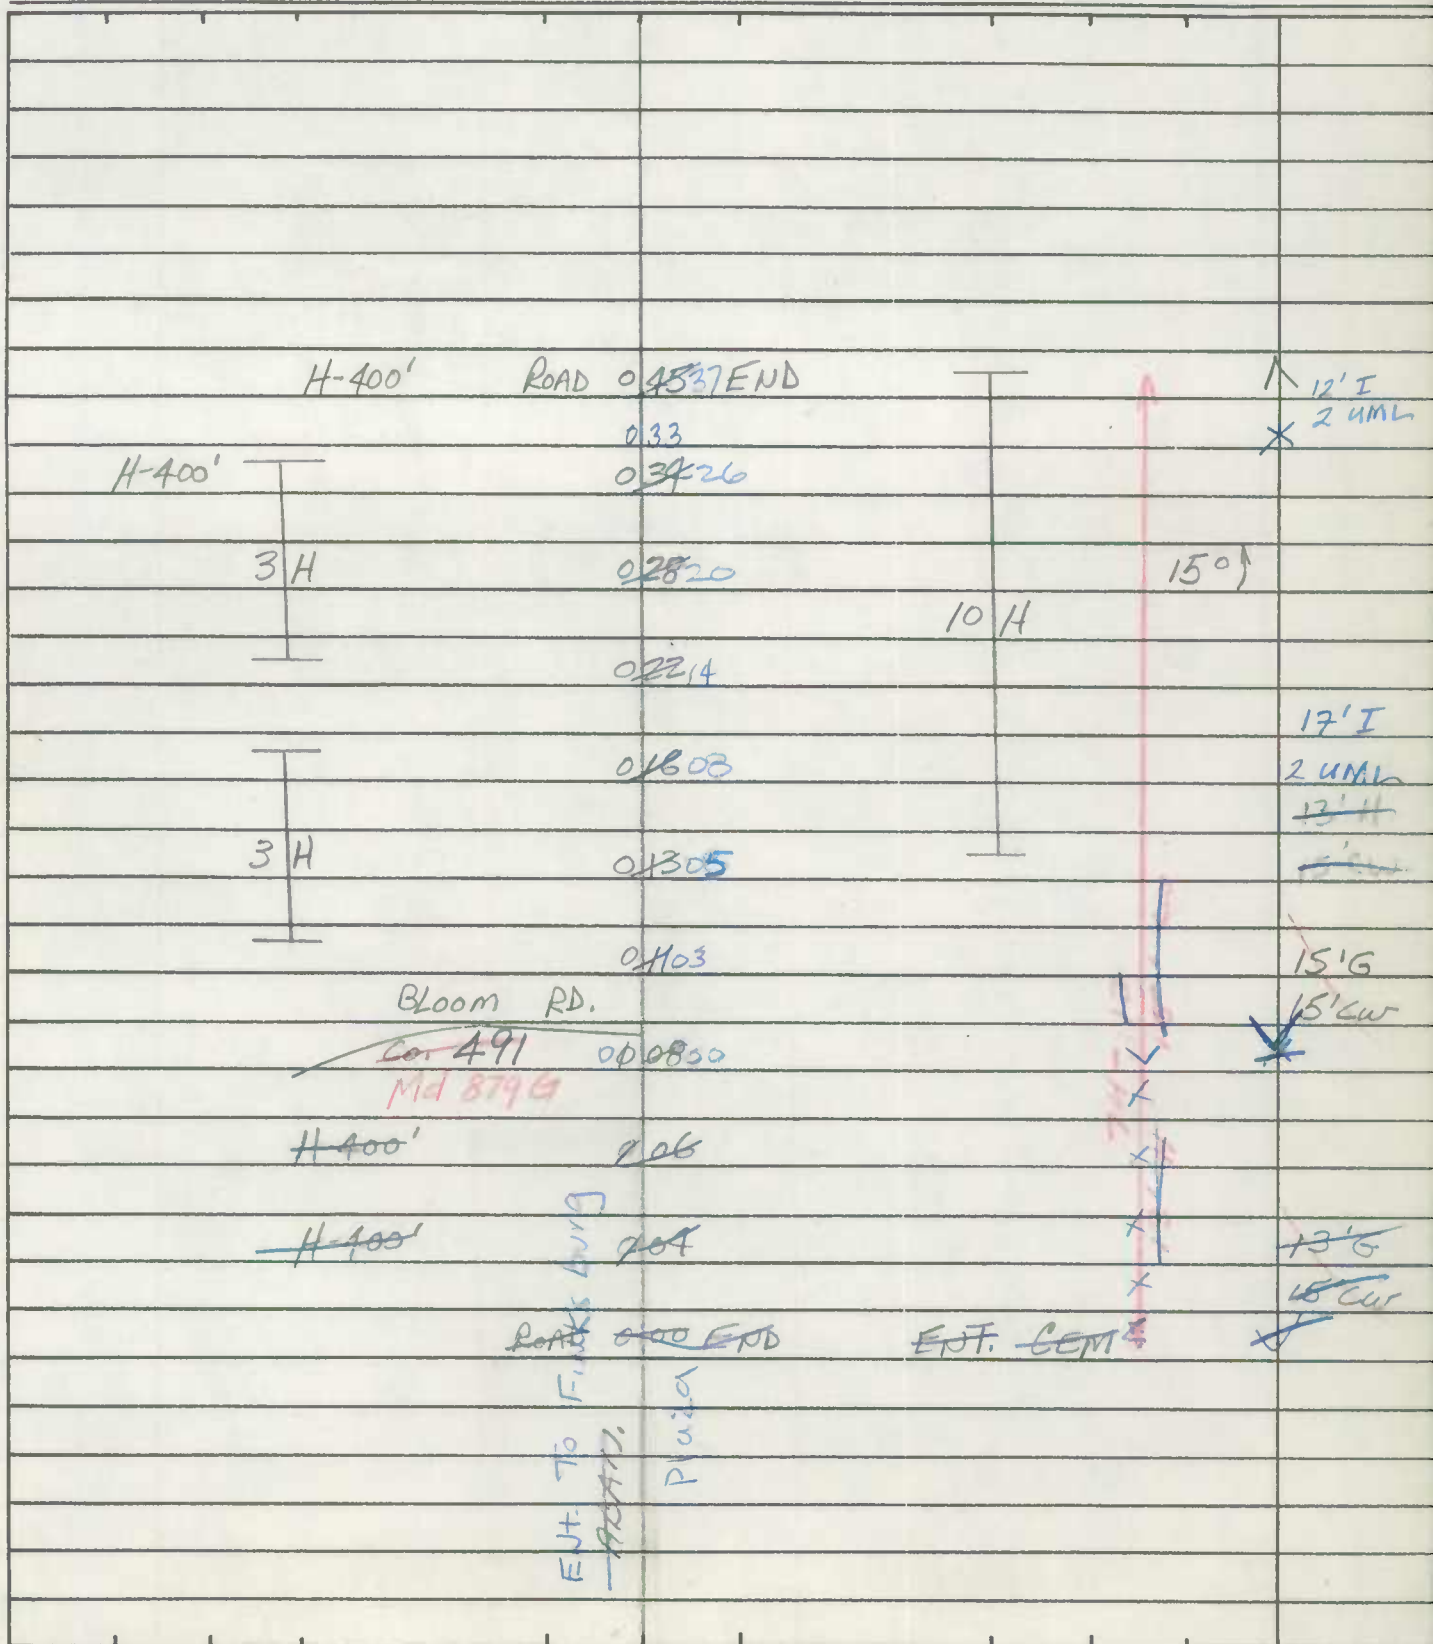 H-400' ROAD 0 45 37 END
12' I
2 UML
0 33
H-400' 0 34 26
3 H 0 28 20 15°
10 H
0 22 14
17' I
0 16 08 2 UML
13' H
3 H 0 13 05
0 11 03 15' G
BLOOM RD. 15' Cur
Co. 491 0 08 00
Md 879 G
H-400' 0 06
H-400' 0 04 13' G
15' Cur
ROAD 0 00 END ENT. CEM
Ent. To Finksburg
Plaza